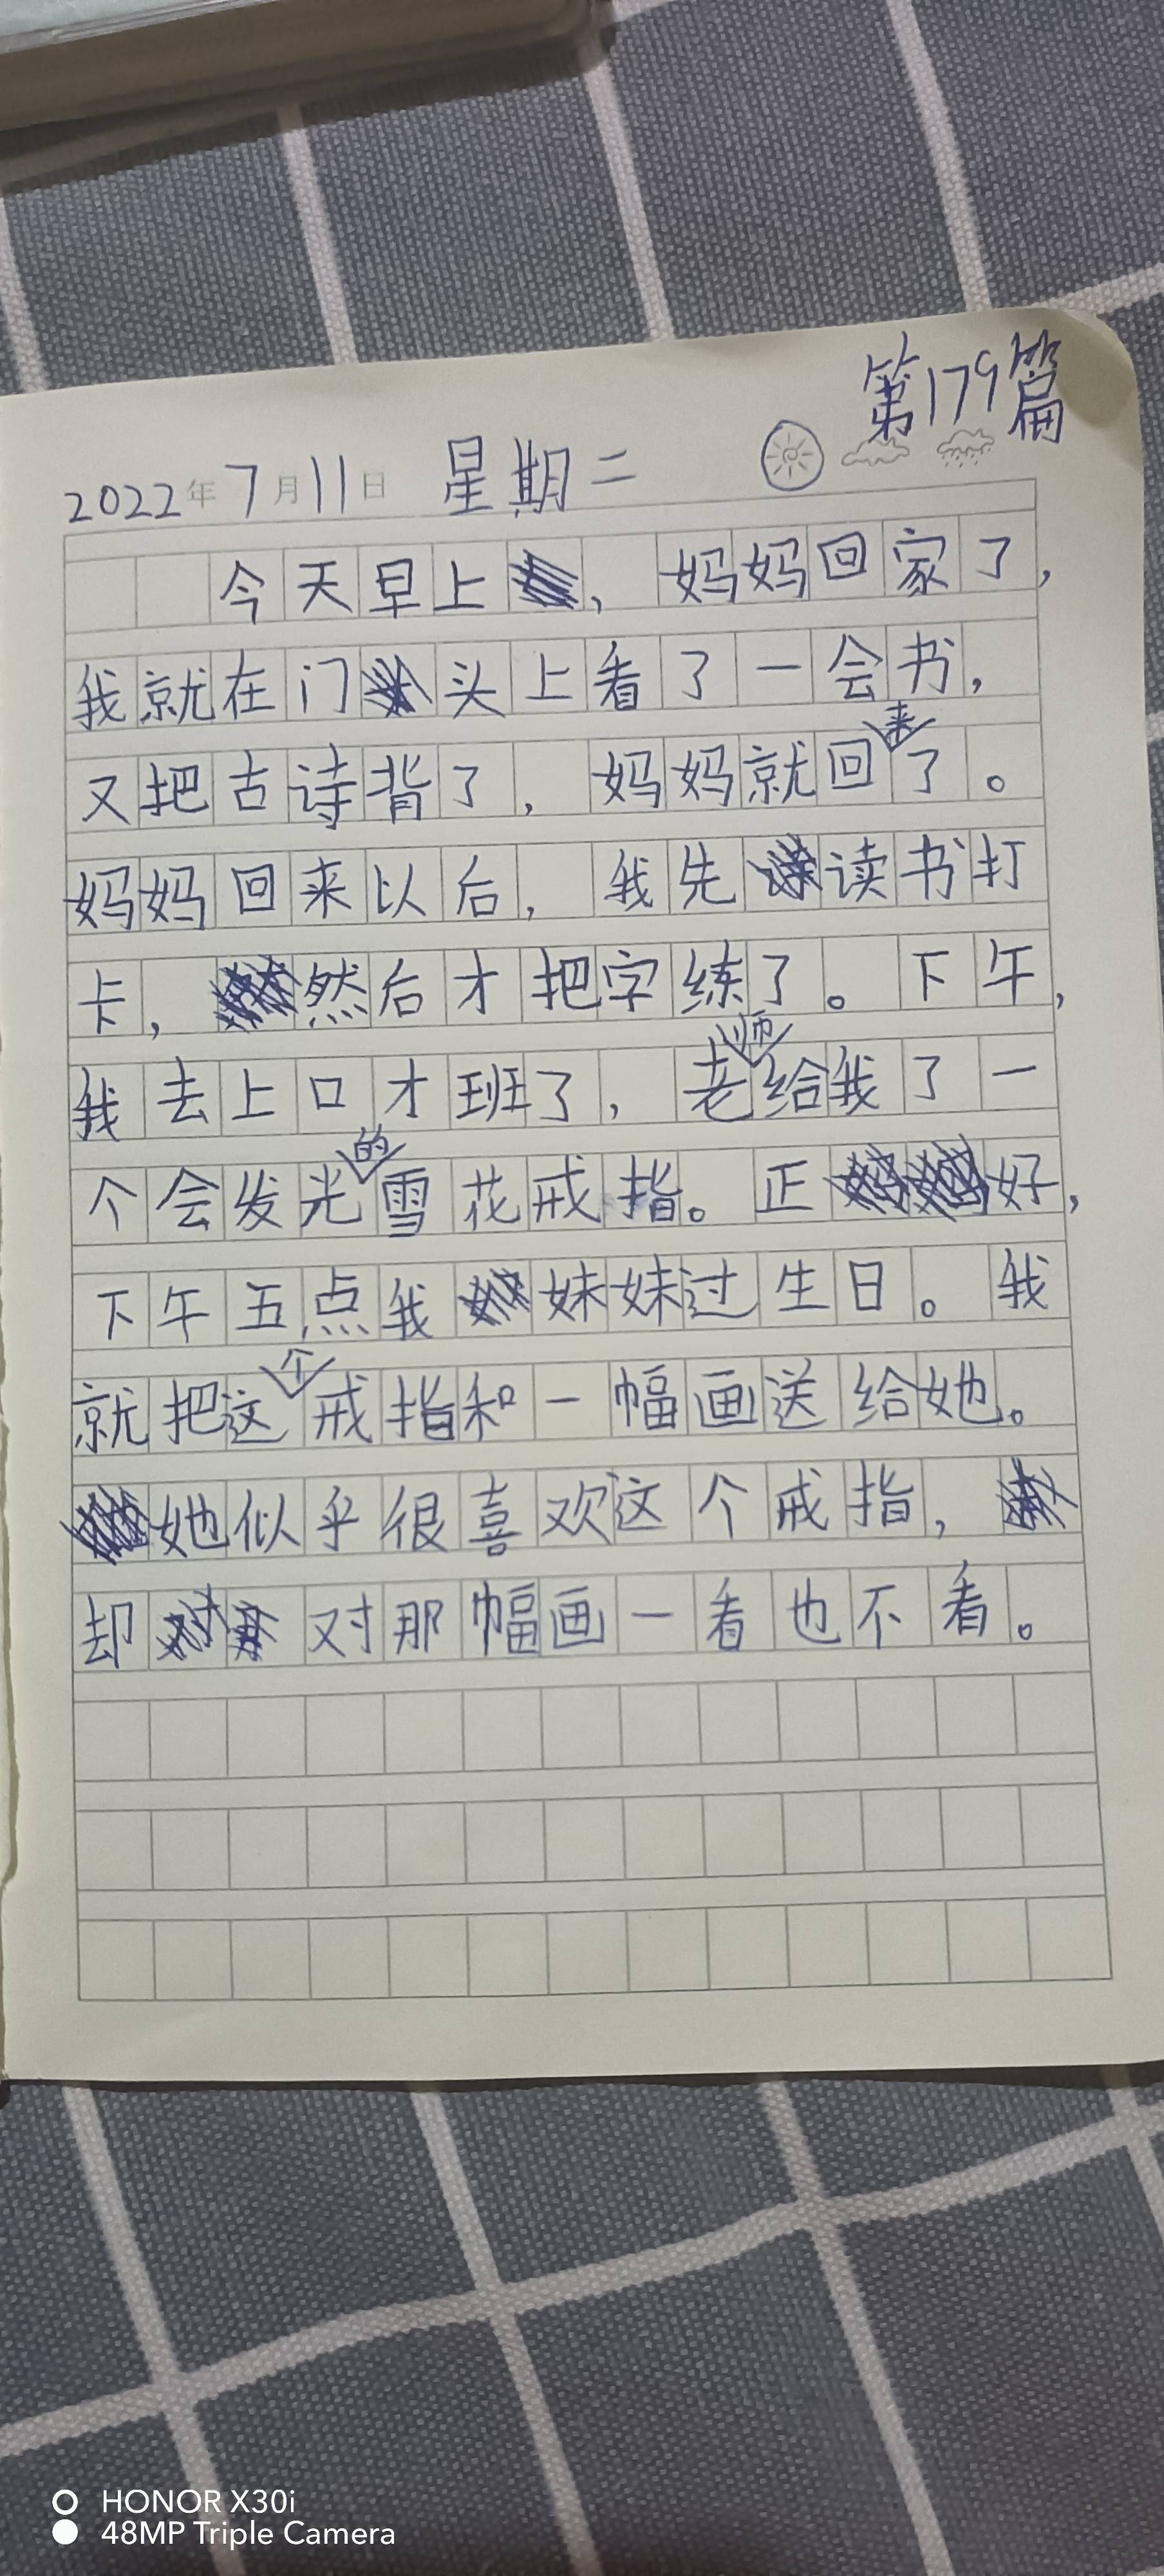 第179篇
2022年7月11日 星期二
今天早上，妈妈回家了，
我就在门头上看了一会书，
又把古诗背了，妈妈就回来了。
妈妈回来以后，我先读书打
卡，然后才把字练了。下午，
我去上口才班了，老师给我了一
个会发光的雪花戒指。正好，
下午五点我妹妹过生日。我
就把这个戒指和一幅画送给她。
她似乎很喜欢这个戒指，
却对那幅画一看也不看。
HONOR X30i
48MP Triple Camera